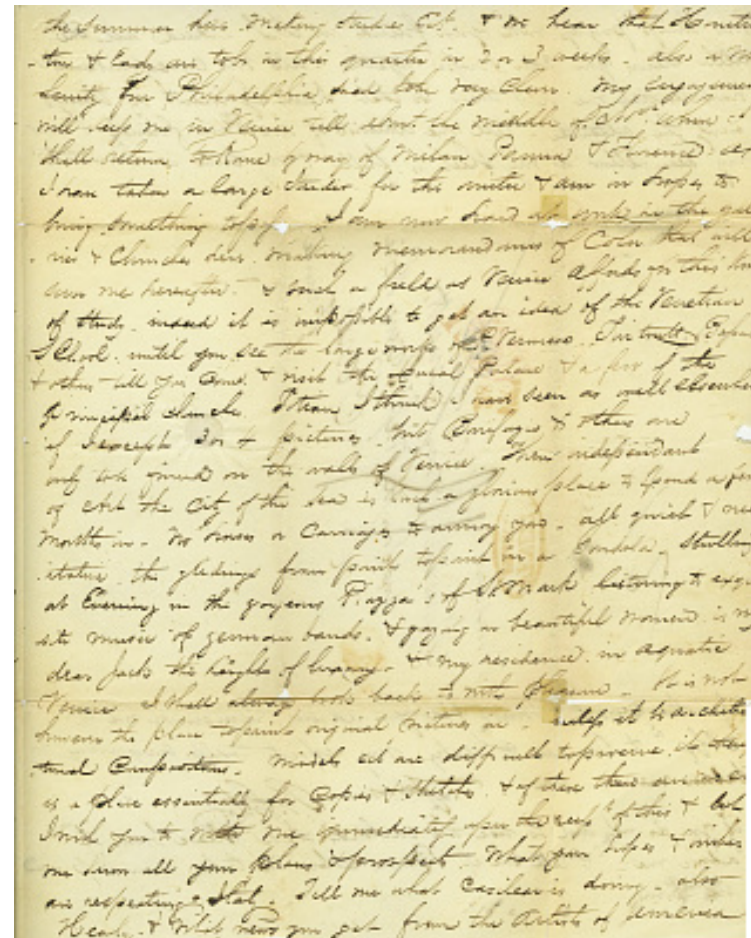 the Summer here making studies &c. & we hear that
& Eads are to be in this quarter in 2 or 3 weeks - also a Mr
from Philadelphia, and both very clever. My engagements
will keep me in Venice till about the middle of Nov. when I
shall return to Rome by way of Milan Parma & Florence.
I have taken a large Studio for the winter & am in hopes to
bring something to pass. I am now hard at work in the
& Churches here making memorandums of Color that will
serve me hereafter - & such a field as Venice affords for this kind
of study, indeed it is impossible to get an idea of the Venetian
School until you see the large works of P. Veronese, Tintoretto,
& others till you come & visit the Ducal Palace & a few of the
principal church. Titian I think I have seen as well elsewhere
if I except 3 or 4 pictures, but & others are
only to be found on the walls of Venice. Then independent
of Art the City of the Sea is such a glorious place to spend a few
months in. No noises or Carriages to annoy you - all quiet &
the gliding from point to point in a Gondola. Strolling
at Evening in the gorgeous Piazza of St Mark listening to
music of german bands, & gazing on beautiful women is my
dear Jack the height of luxury. & my residence in aquatic
Venice I shall always look back to with pleasure. It is not
however the place to paint original pictures in - unless it be
Compositions. Models &c are difficult to procure
is a place essentially for Copies & Sketches, & of these there
I wish you to write me immediately upon the rect of this & let
me know all your plans & prospects. What your hopes & wishes
are respecting Italy. Tell me what Casilear is doing - also
& what news you get from the Artists of America